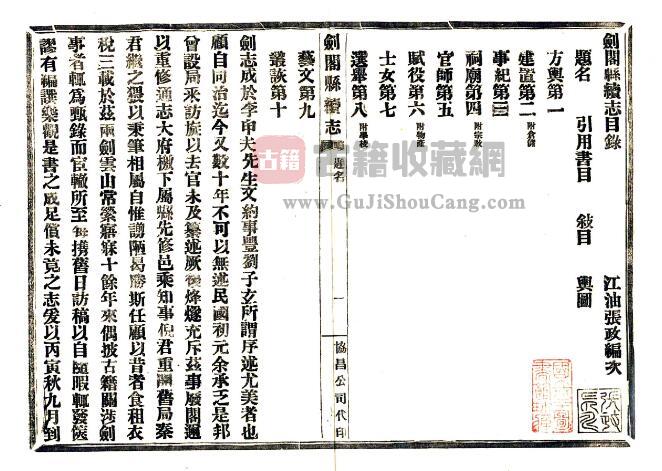 劍閣縣續志目錄
江油張政編次
題名 引用書目 敍目 輿圖
方輿第一
建置第二 附倉儲
事紀第三
祠廟第四 附宗教
官師第五
賦役第六 附物產
士女第七
選舉第八 附學校
劍閣縣續志 題名 一 協昌公司代印
藝文第九
叢談第十
劍志成於李申夫先生文約事豐劉子玄所謂序述尤美者也
顧自同治迄今又數十年不可以無述民國初元余承乏是邦
曾設局采訪旋以去官未及纂述厥後烽燧充斥茲事廢閣邇
以重修通志大府檄下屬縣先修邑乘知事倪君重開舊局秦
君繼之猥以秉筆相屬自惟謭陋曷勝斯任顧以昔者食租衣
稅三載於茲兩劍雲山常縈寤寐十餘年來偶披古籍關涉劍
事者輒爲甄錄而宦轍所至每攜舊日訪稿以自隨暇輒發篋
謬有編譔樂觀是書之成足償未竟之志爰以丙寅秋九月到
古籍 古籍收藏網
www.GuJiShouCang.com